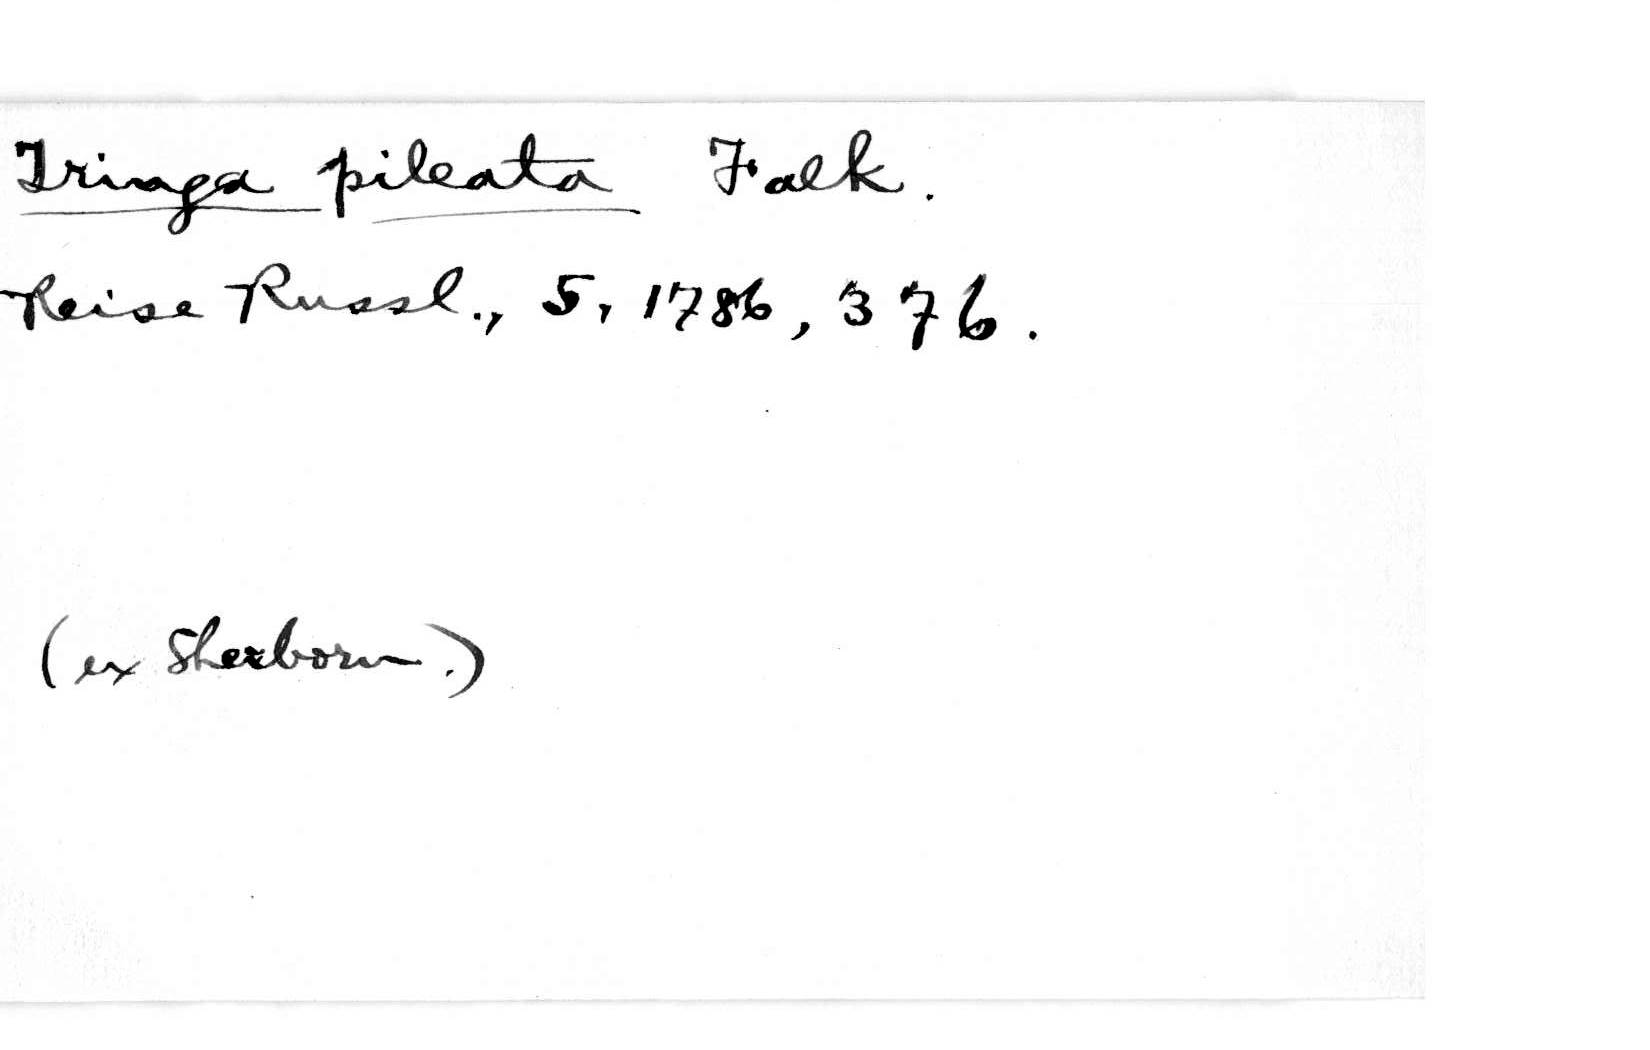 Tringa pileata Falk.
Reise Russl., 5, 1786, 376.
(ex Sherborn.)